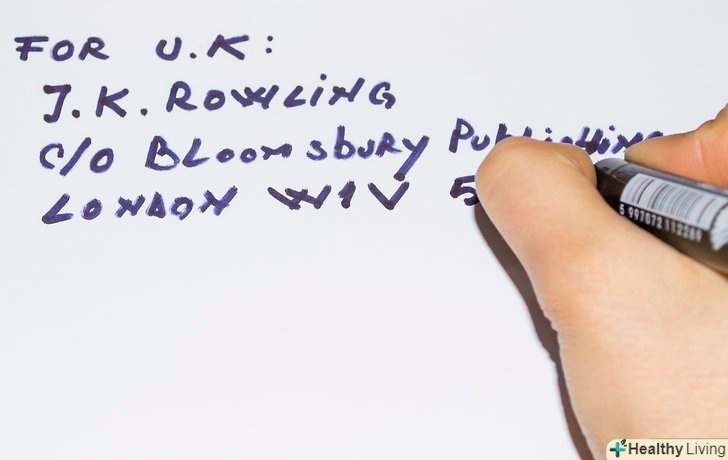 FOR U.K:
J.K. ROWLING
C/O BLOOMSBURY PUBLISHING
LONDON W1V 5
5 997072 112289
Healthy Living